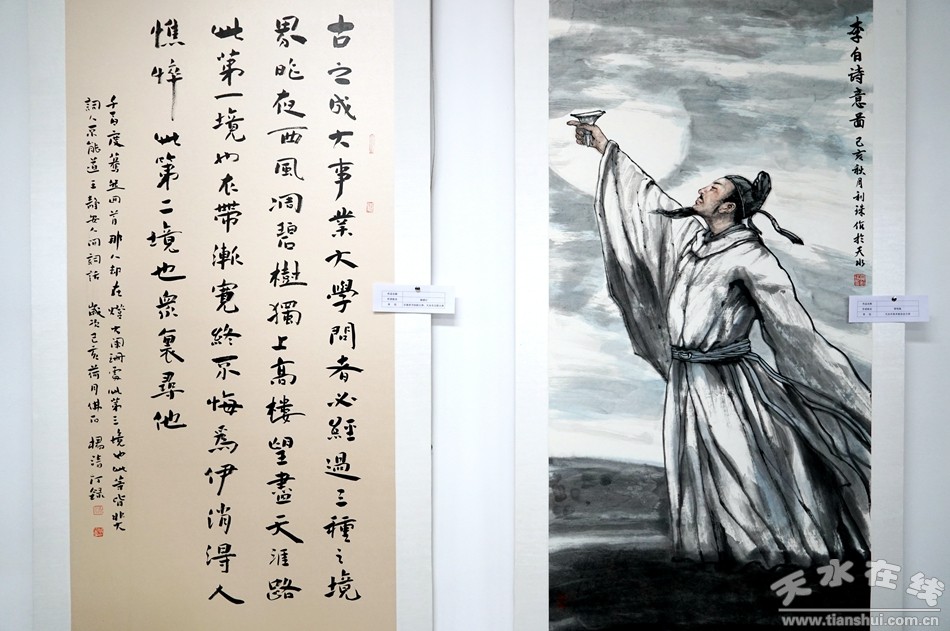 古之成大事業大學問者必經過三種之境
界昨夜西風凋碧樹獨上高樓望盡天涯路
此第一境也衣帶漸寬終不悔爲伊消得人
憔悴 此第二境也衆裏尋他
千百度驀然回首那人却在燈火闌珊處此第三境也此等皆非大
詞人不能道王靜安人间詞話 歲次己亥荷月 楊清汀録
李白诗意啚
己亥秋月利珠作於天水
天水在线
www.tianshui.com.cn